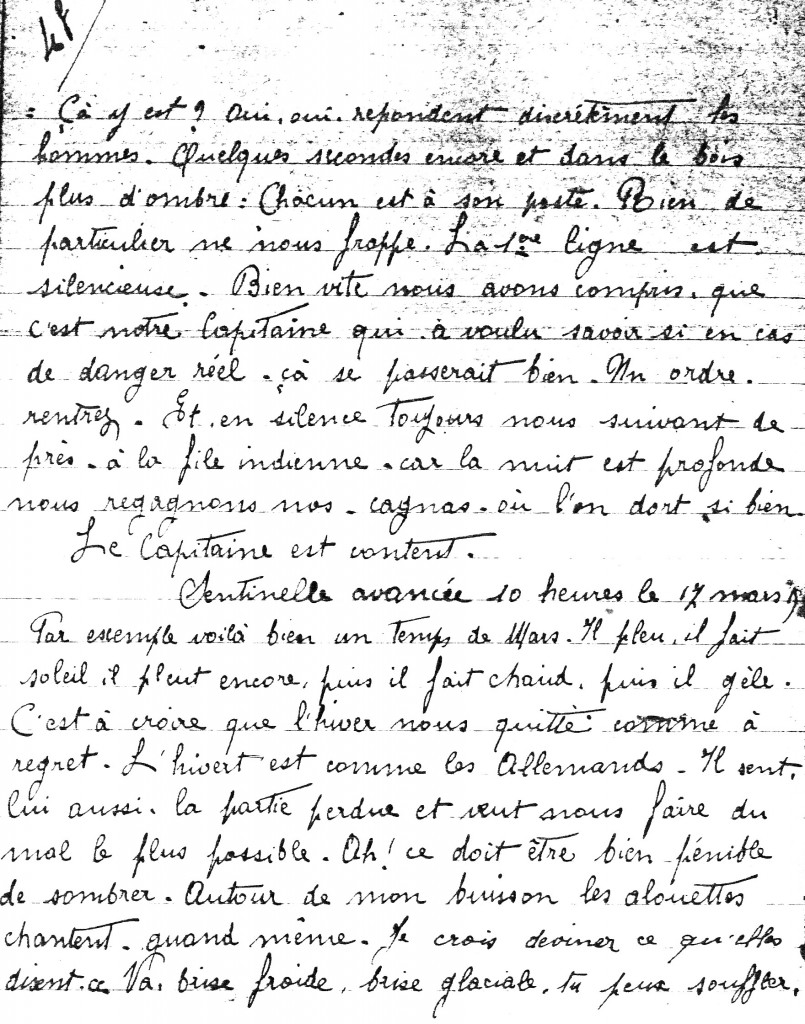 47
= Çà y est ? Oui, oui. repondent discrètement les
hommes. Quelques secondes encore et dans le bois
plus d'ombre : Chacun est à son poste. Rien de
particulier ne nous frappe. La 1ère ligne est
silencieuse. Bien vite nous avons compris, que
c'est notre Capitaine qui à voulu savoir si en cas
de danger réel - çà se passerait bien. Un ordre.
rentrez. Et, en silence toujours nous suivant de
près - à la file indienne - car la nuit est profonde
nous regagnons nos - cagnas - où l'on dort si bien.
Le Capitaine est content.
Sentinelle avancée 10 heures le 17 mars
Par exemple voilà bien un temps de Mars. Il pleu, il fait
soleil il pleut encore, puis il fait chaud, puis il gèle.
C'est à croire que l'hiver nous quitte comme à
regret. L'hivert est comme les Allemands - Il sent,
lui aussi, la partie perdue et veut nous faire du
mal le plus possible. Ah! ce doit être bien pénible
de sombrer. Autour de mon buisson les alouettes
chantent - quand même. Je crois deviner ce qu'elles
disent. Va, brise froide, brise glaciale, tu peux souffler,